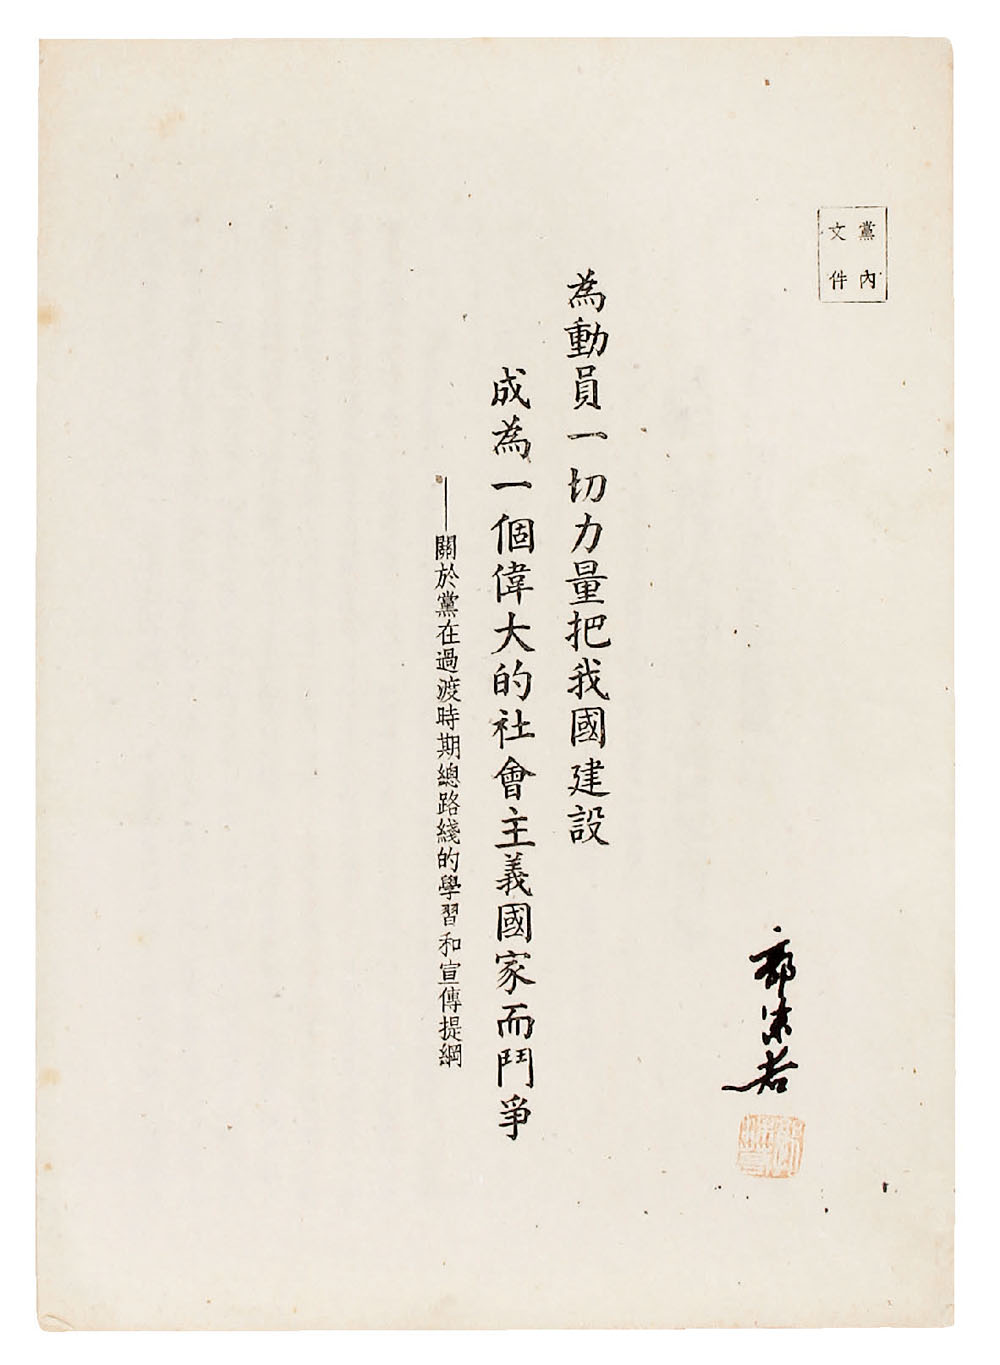 黨內
文件
為動員一切力量把我國建設
成為一個偉大的社會主義國家而鬥爭
——關於黨在過渡時期總路綫的學習和宣傳提綱
郭沫若